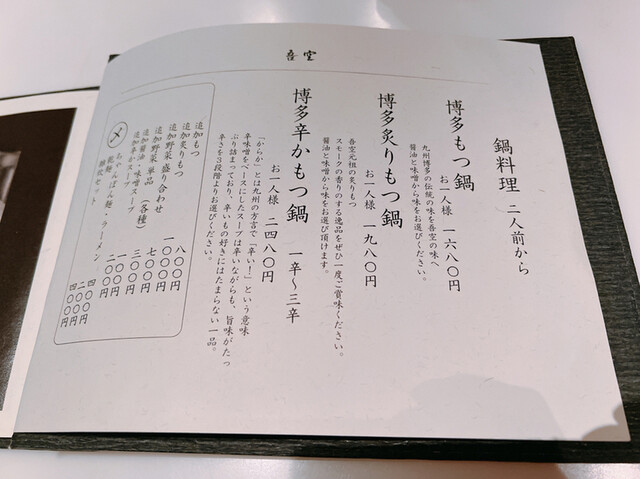 吾空
鍋料理 二人前から
博多もつ鍋
お一人様 一六八〇円
九州博多の伝統の味を吾空の味へ
醤油と味噌から味をお選びください。
博多炙りもつ鍋
お一人様 一九八〇円
吾空元祖の炙りもつ
スモークの香りのする逸品をぜひ一度ご賞味ください。
醤油と味噌から味をお選び頂けます。
博多辛かもつ鍋 一辛〜三辛
お一人様 二四八〇円
「からか」とは九州の方言で「辛い！」という意味
辛味噌をベースにしたスープは辛いながらも、旨味がたっ
ぷり詰まっており、辛いもの好きにはたまらない一品。
辛さを3段階よりお選びください。
追加もつ 八〇〇円
追加炙りもつ 一〇〇〇円
追加野菜 盛り合わせ 七〇〇円
追加野菜 単品（各種） 三〇〇円
追加醤油・味噌スープ 一〇〇円
追加辛かスープ 二〇〇円
〆
ちゃんぽん麺・ラーメン
雑炊セット 四〇〇円